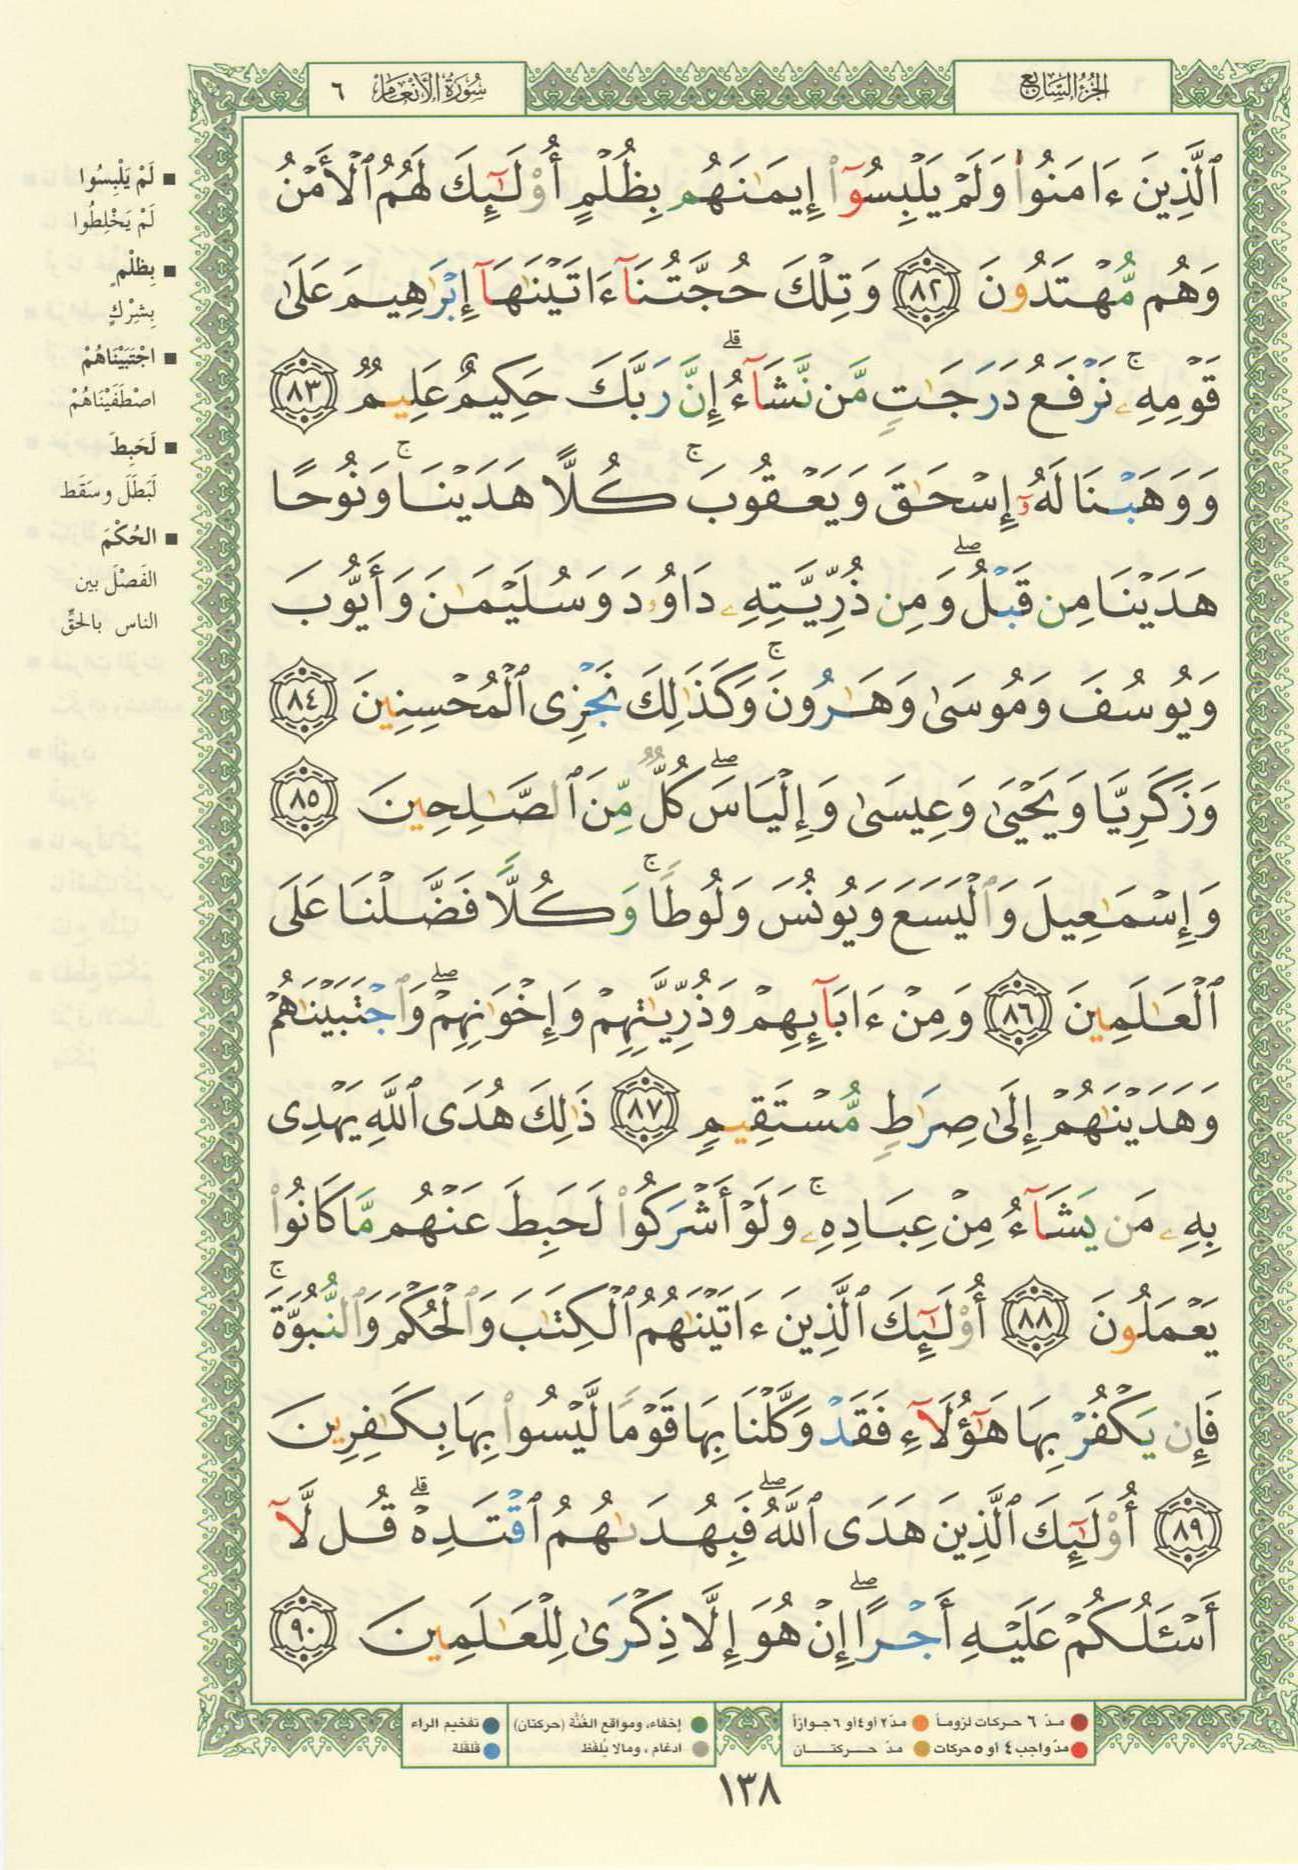 الجزء السابع
سورة الأنعام ٦
ٱلَّذِينَ ءَامَنُوا۟ وَلَمْ يَلْبِسُوٓا۟ إِيمَـٰنَهُم بِظُلْمٍ أُو۟لَـٰٓئِكَ لَهُمُ ٱلْأَمْنُ
وَهُم مُّهْتَدُونَ ٨٢ وَتِلْكَ حُجَّتُنَآ ءَاتَيْنَـٰهَآ إِبْرَٰهِيمَ عَلَىٰ
قَوْمِهِۦ ۚ نَرْفَعُ دَرَجَـٰتٍ مَّن نَّشَآءُ ۗ إِنَّ رَبَّكَ حَكِيمٌ عَلِيمٌ ٨٣
وَوَهَبْنَا لَهُۥٓ إِسْحَـٰقَ وَيَعْقُوبَ ۚ كُلًّا هَدَيْنَا ۚ وَنُوحًا
هَدَيْنَا مِن قَبْلُ ۖ وَمِن ذُرِّيَّتِهِۦ دَاوُۥدَ وَسُلَيْمَـٰنَ وَأَيُّوبَ
وَيُوسُفَ وَمُوسَىٰ وَهَـٰرُونَ ۚ وَكَذَٰلِكَ نَجْزِى ٱلْمُحْسِنِينَ ٨٤
وَزَكَرِيَّا وَيَحْيَىٰ وَعِيسَىٰ وَإِلْيَاسَ ۖ كُلٌّ مِّنَ ٱلصَّـٰلِحِينَ ٨٥
وَإِسْمَـٰعِيلَ وَٱلْيَسَعَ وَيُونُسَ وَلُوطًا ۚ وَكُلًّا فَضَّلْنَا عَلَى
ٱلْعَـٰلَمِينَ ٨٦ وَمِنْ ءَابَآئِهِمْ وَذُرِّيَّـٰتِهِمْ وَإِخْوَٰنِهِمْ ۖ وَٱجْتَبَيْنَـٰهُمْ
وَهَدَيْنَـٰهُمْ إِلَىٰ صِرَٰطٍ مُّسْتَقِيمٍ ٨٧ ذَٰلِكَ هُدَى ٱللَّهِ يَهْدِى
بِهِۦ مَن يَشَآءُ مِنْ عِبَادِهِۦ ۚ وَلَوْ أَشْرَكُوا۟ لَحَبِطَ عَنْهُم مَّا كَانُوا۟
يَعْمَلُونَ ٨٨ أُو۟لَـٰٓئِكَ ٱلَّذِينَ ءَاتَيْنَـٰهُمُ ٱلْكِتَـٰبَ وَٱلْحُكْمَ وَٱلنُّبُوَّةَ ۚ
فَإِن يَكْفُرْ بِهَا هَـٰٓؤُلَآءِ فَقَدْ وَكَّلْنَا بِهَا قَوْمًا لَّيْسُوا۟ بِهَا بِكَـٰفِرِينَ
٨٩ أُو۟لَـٰٓئِكَ ٱلَّذِينَ هَدَى ٱللَّهُ ۖ فَبِهُدَىٰهُمُ ٱقْتَدِهْ ۗ قُل لَّآ
أَسْـَٔلُكُمْ عَلَيْهِ أَجْرًا ۖ إِنْ هُوَ إِلَّا ذِكْرَىٰ لِلْعَـٰلَمِينَ ٩٠
■ لَمْ يَلْبِسُوا
لَمْ يَخْلِطُوا
■ بِظُلْمٍ
بِشِرْكٍ
■ اجْتَبَيْنَاهُمْ
اصْطَفَيْنَاهُمْ
■ لَحَبِطَ
لَبَطَلَ وسَقَط
■ الحُكْمَ
الفَصْلَ بين
الناس بالحقّ
مدّ ٦ حركات لزوماً مدّ ٢ أو ٤ أو ٦ جوازاً إخفاء، ومواقع الغُنَّة (حركتان) تفخيم الراء
مدّ واجب ٤ أو ٥ حركات مدّ حركتان ادغام، ومالا يُلفظ قلقلة
١٣٨